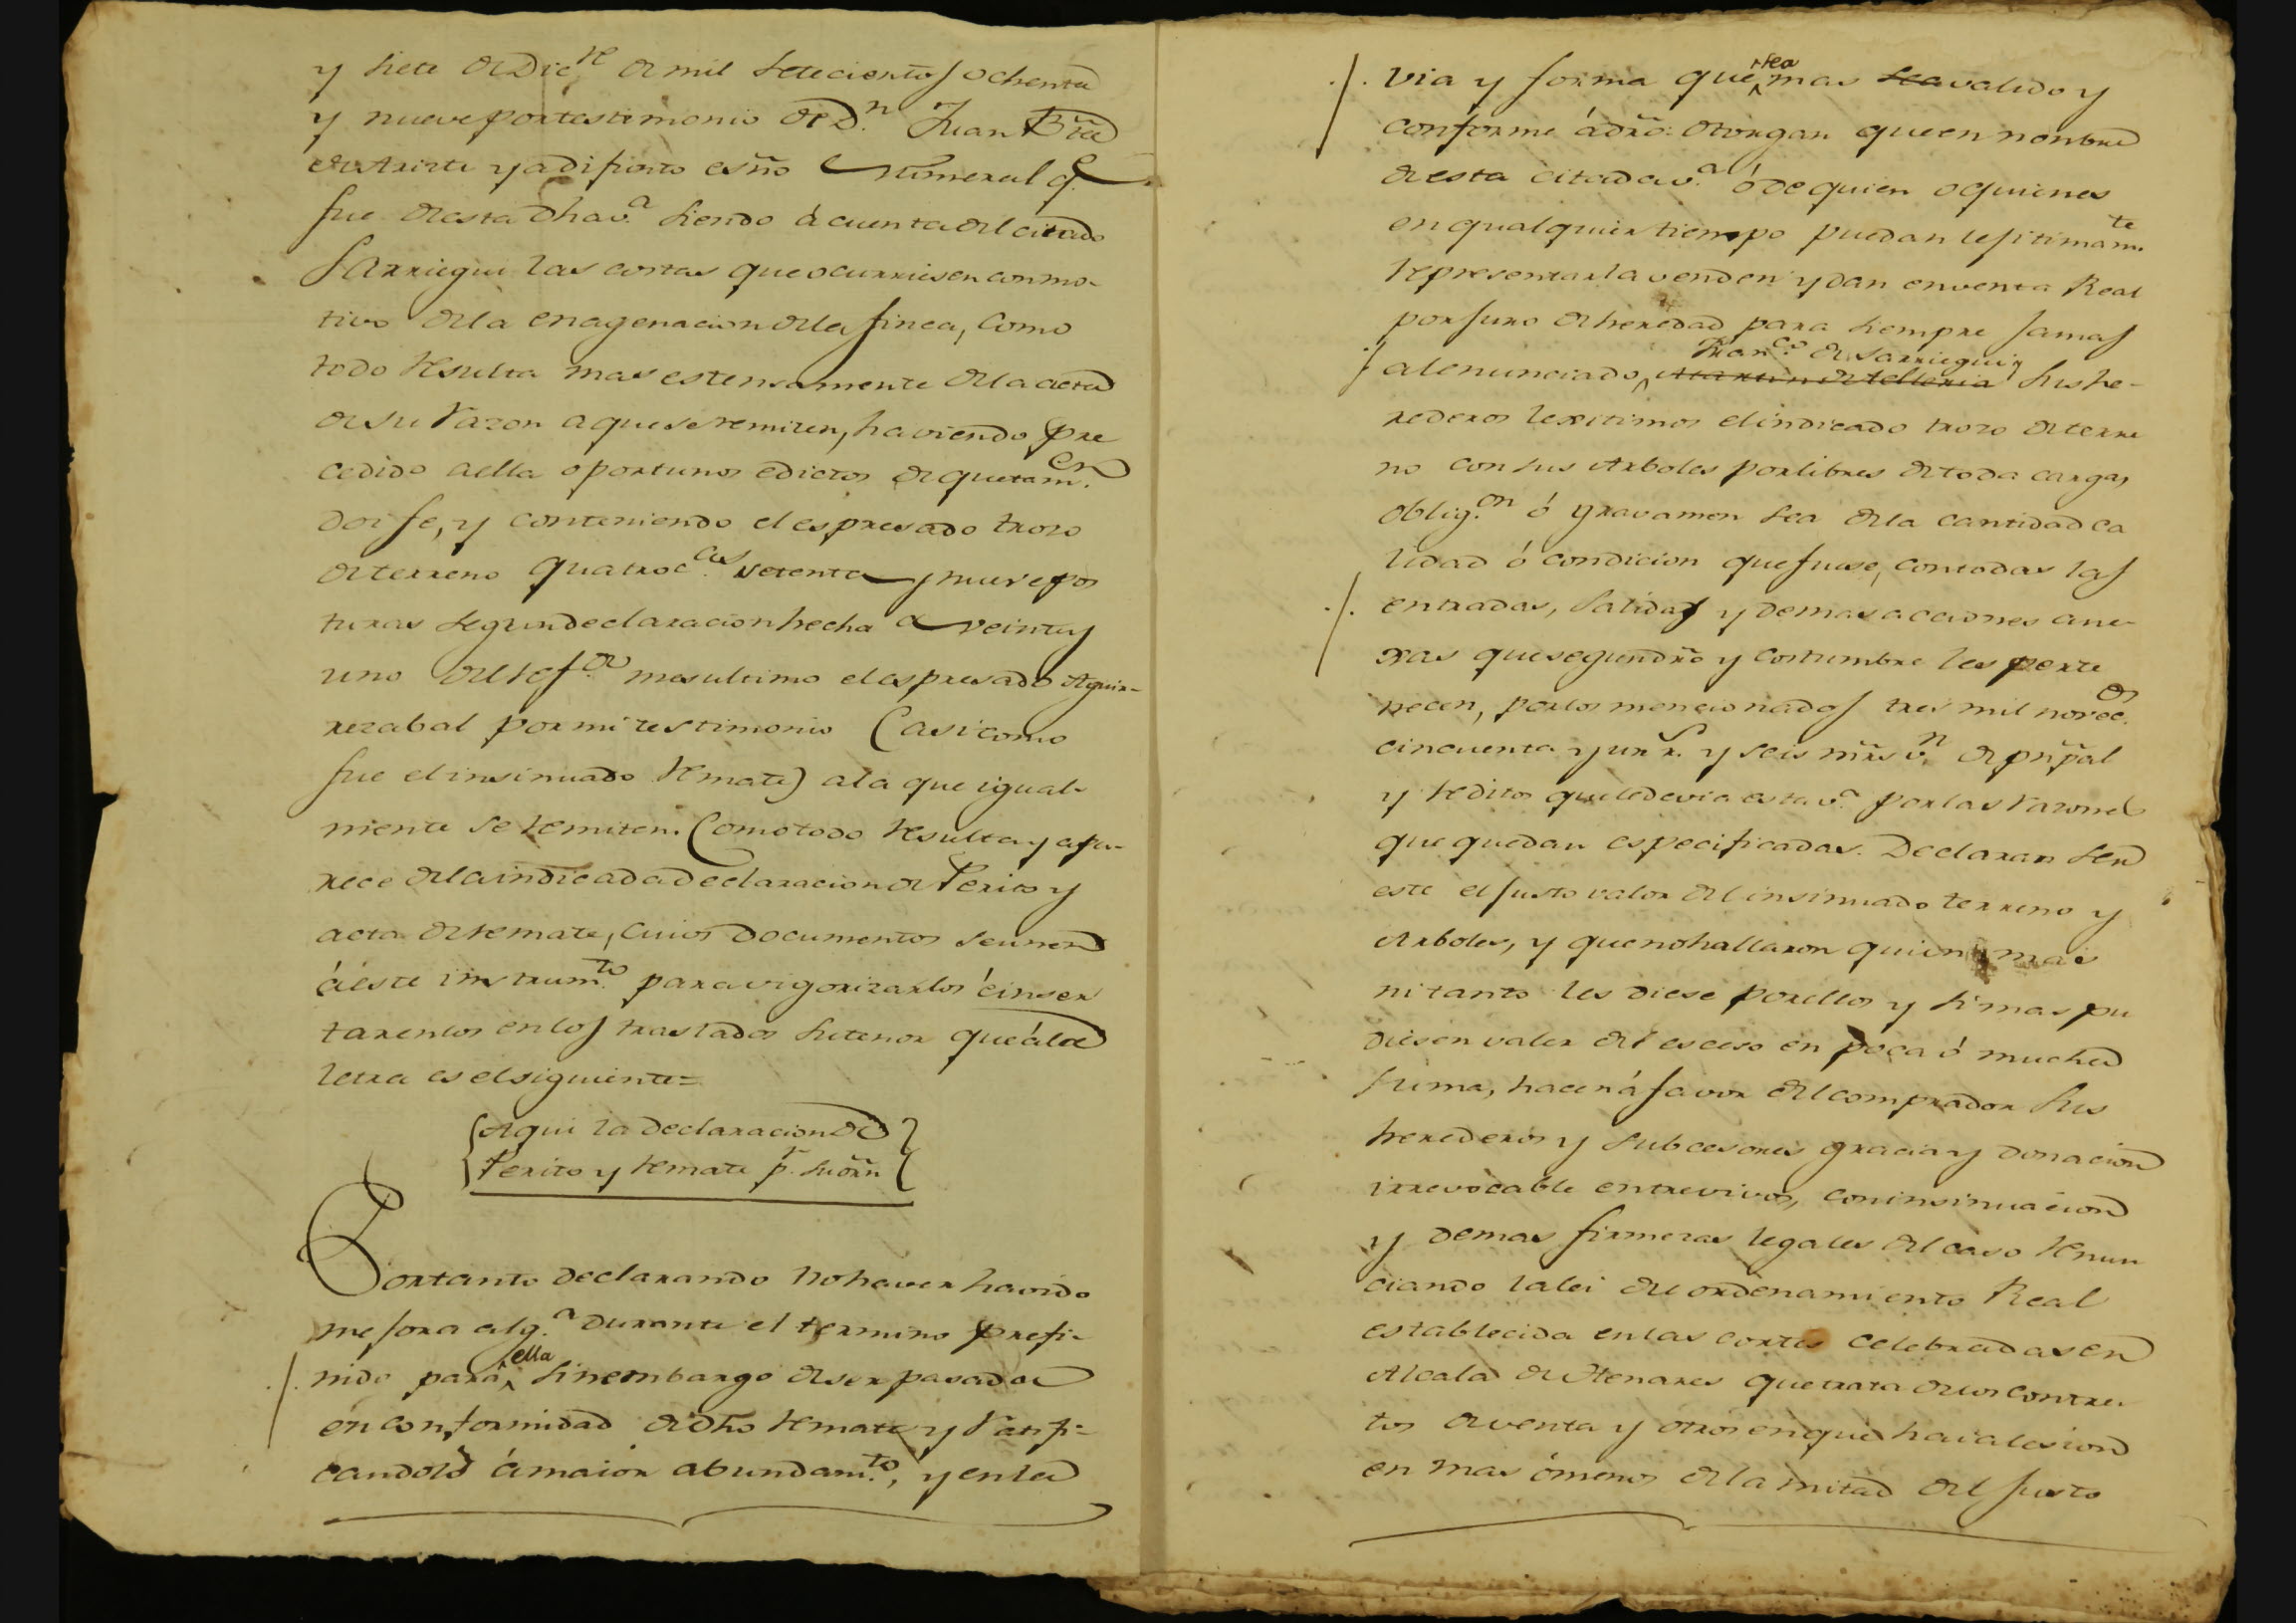 y siete de Dic.re de mil setecientos ochenta
y nueve por testimonio de D.n Juan Bta
de Arizte ya difunto esño Numeral q.e
fue de esta dha v.a siendo á cuenta del citado
Sarriegui las costas que ocurriesen con mo-
tivo de la enagenacion de la finca, como
todo resulta mas estensamente de la acta
de su razon a que se remiten, haviendo pre
cedido a ella oportunos edictos de que tam.en
doi fe, y conteniendo el espresado trozo
de terreno quatroc.as setenta y nueve pos
turas segun declaracion hecha a veinte y
uno del ref.do mes ultimo el espresado Aguir-
rezabal por mi testimonio (asi como
fue el insinuado remate) a la que igual-
mente se remiten. Como todo resulta y apa-
rece de la indicada declaracion de Perito y
acta de remate, cuios documentos se unen
á este instrum.to para vigorizarlos é inser
tarenlos en los traslados su tenor que á la
letra es el siguiente=
Aqui la declaracion de
Perito y remate p.r su orñ
Por tanto declarando no haver havido
mejora alg.a durante el termino prefi-
nido para ella sin embargo de ser pasado
en conformidad de dho remate y ratifi=
candolo á maior abundam.to, y en la
via y forma que sea mas sea valido y
conforme á dro: otorgan que en nonbre
de esta citada v.a ó de quien o quienes
en qualquier tiempo puedan lejitimam.te
representarla venden y dan en venta Real
por juro de heredad para siempre jamas
al enunciado Fran.co de Sarriegui y Martin de Telleria sus he-
rederos lexitimos el indicado trozo de terre
no con sus Arboles por libres de toda carga,
oblig.on ó gravamen sea de la cantidad ca
lidad ó condicion que fuese, con todas las
entradas, salidas y demas acciones ane-
xas que segun dro y costumbre les perte
necen, por los mencionados tres mil novec.os
cincuenta y un r.s y seis mrs v.n de prpal
y reditos que le devia esta v.a por las razones
que quedan especificadas. Declaran ser
este el justo valor del insinuado terreno y
Arboles, y que no hallaron quien mas
ni tanto les diese por ellos y si mas pu
diesen valer del esceso en poca ó mucha
suma, hacen á favor del comprador sus
herederos y subcesores gracia y donacion
irrevocable entre vivos, con insinuacion
y demas firmezas legales del caso renun
ciando la lei del ordenamiento Real
establecida en las cortes celebradas en
Alcala de Henares que trata de los contra
tos de venta y otros en que haia lesion
en mas ó menos de la mitad del justo